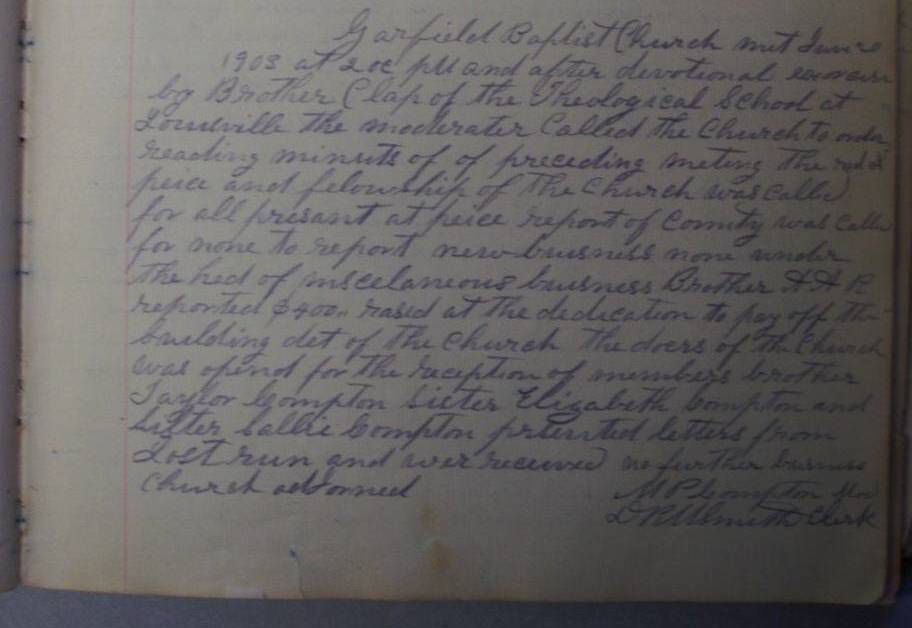 Garfield Baptist Church met June
1903 at 2 oc PM and after devotional exercise
by Brother Clap of the Theological School at
Louisville the moderater Called the Church to order
reading minuts of of preceding meting the
peice and felowship of the Church was calle
for all presant at peice report of Comity was calle
for none to report new buisness none under
the hed of miscelaneous buisness Brother A A R
reported $400.. rased at the dedication to pay off the
building det of the Church the doers of the Church
was opend for the reception of members brother
Taylor Compton Sister Elizabeth Compton and
Sister Sallie Compton presented letters from
Lost run and wer received no further buisness
Church adorned
M P Compton Mod
Clerk